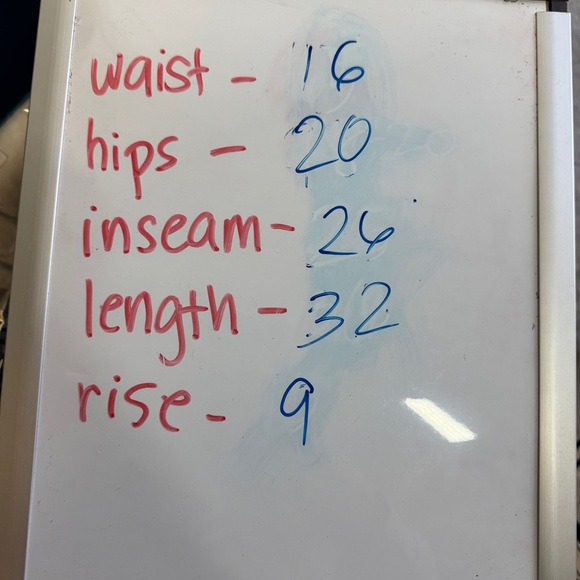 waist - 16
hips - 20
inseam - 26
length - 32
rise - 9